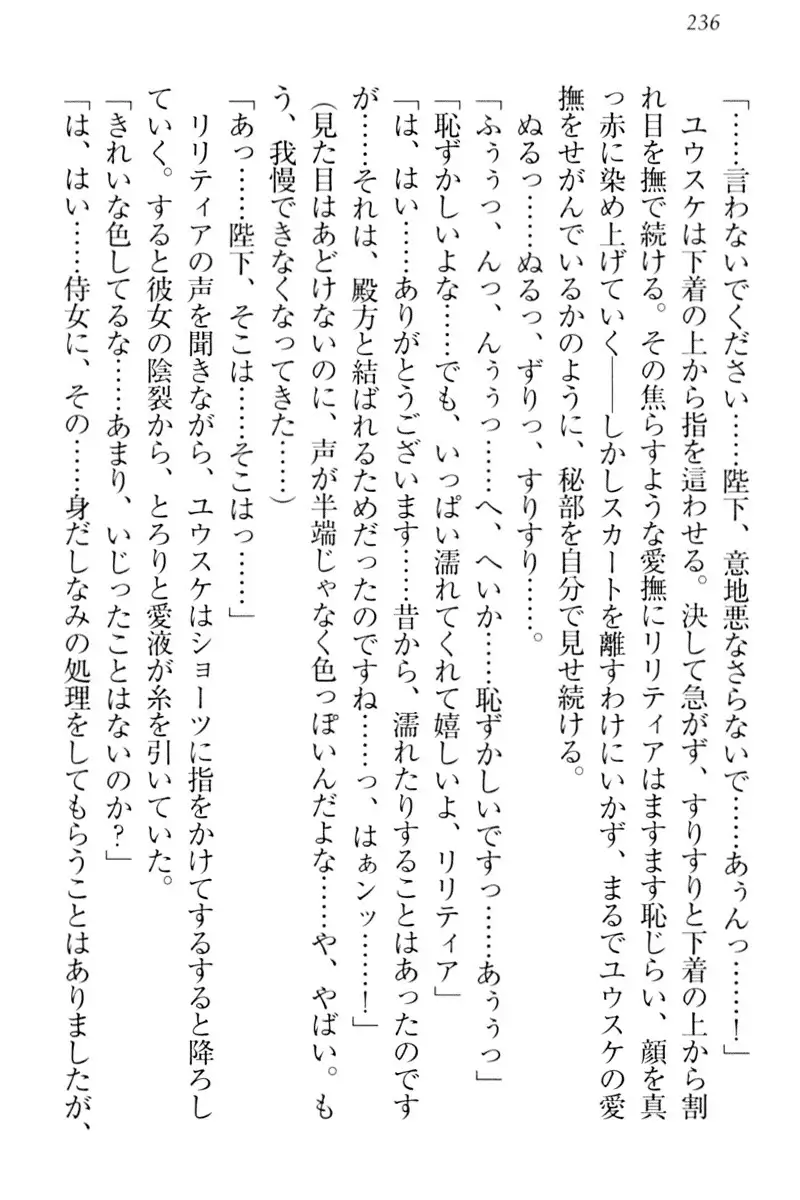 236
「……言わないでください……陛下、意地悪なさらないで……あぅんっ……！」
ユウスケは下着の上から指を這わせる。決して急がず、すりすりと下着の上から割
れ目を撫で続ける。その焦らすような愛撫にリリティアはますます恥じらい、顔を真
っ赤に染め上げていく――しかしスカートを離すわけにいかず、まるでユウスケの愛
撫をせがんでいるかのように、秘部を自分で見せ続ける。
ぬるっ……ぬるっ、ずりっ、すりすり……。
「ふぅぅっ、んっ、んぅぅっ……へ、へいか……恥ずかしいですっ……あぅぅっ」
「恥ずかしいよな……でも、いっぱい濡れてくれて嬉しいよ、リリティア」
「は、はい……ありがとうございます……昔から、濡れたりすることはあったのです
が……それは、殿方と結ばれるためだったのですね……っ、はぁンッ……！」
（見た目はあどけないのに、声が半端じゃなく色っぽいんだよな……や、やばい。も
う、我慢できなくなってきた……）
「あっ……陛下、そこは……そこはっ……」
リリティアの声を聞きながら、ユウスケはショーツに指をかけてするすると降ろし
ていく。すると彼女の陰裂から、とろりと愛液が糸を引いていた。
「きれいな色してるな……あまり、いじったことはないのか？」
「は、はい……侍女に、その……身だしなみの処理をしてもらうことはありましたが、